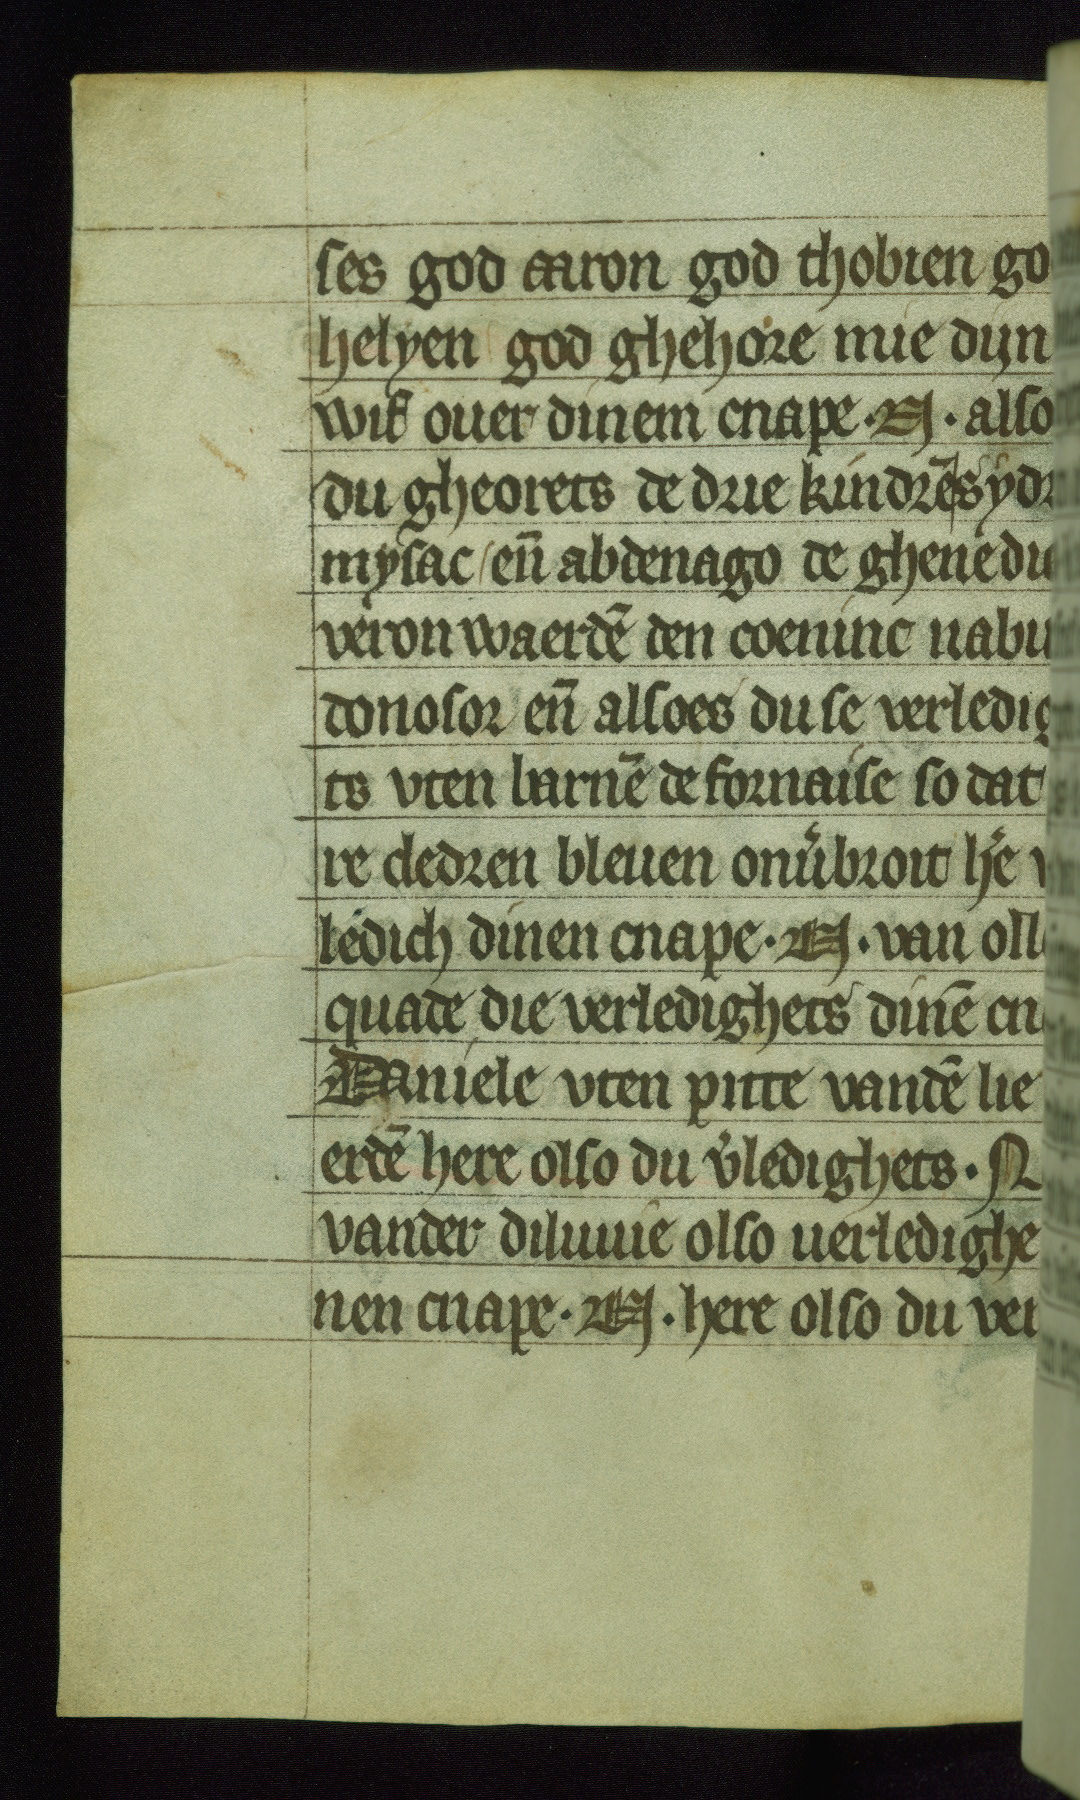 ses god aaron god thobien go
helyen god ghehore mie dijn
wif ouer dinem cnape · N · also
du gheorets de drie kindrē sydr
mysac / en̄ abdenago de ghene di
veronwaerdē den coeninc nabu
donosor en̄ alsoes du se verledig
ts vten barnē de fornaise so dat
re cledren bleuen onu̓broit h̓e v
ledich dinen cnape · N · van oll
quade die verledighets dinē cn
Daniele vten pitte vandē lie
erdē here olso du v̓ledighets · N
vander diluuie olso uerledighe
nen cnape · N · here olso du ver